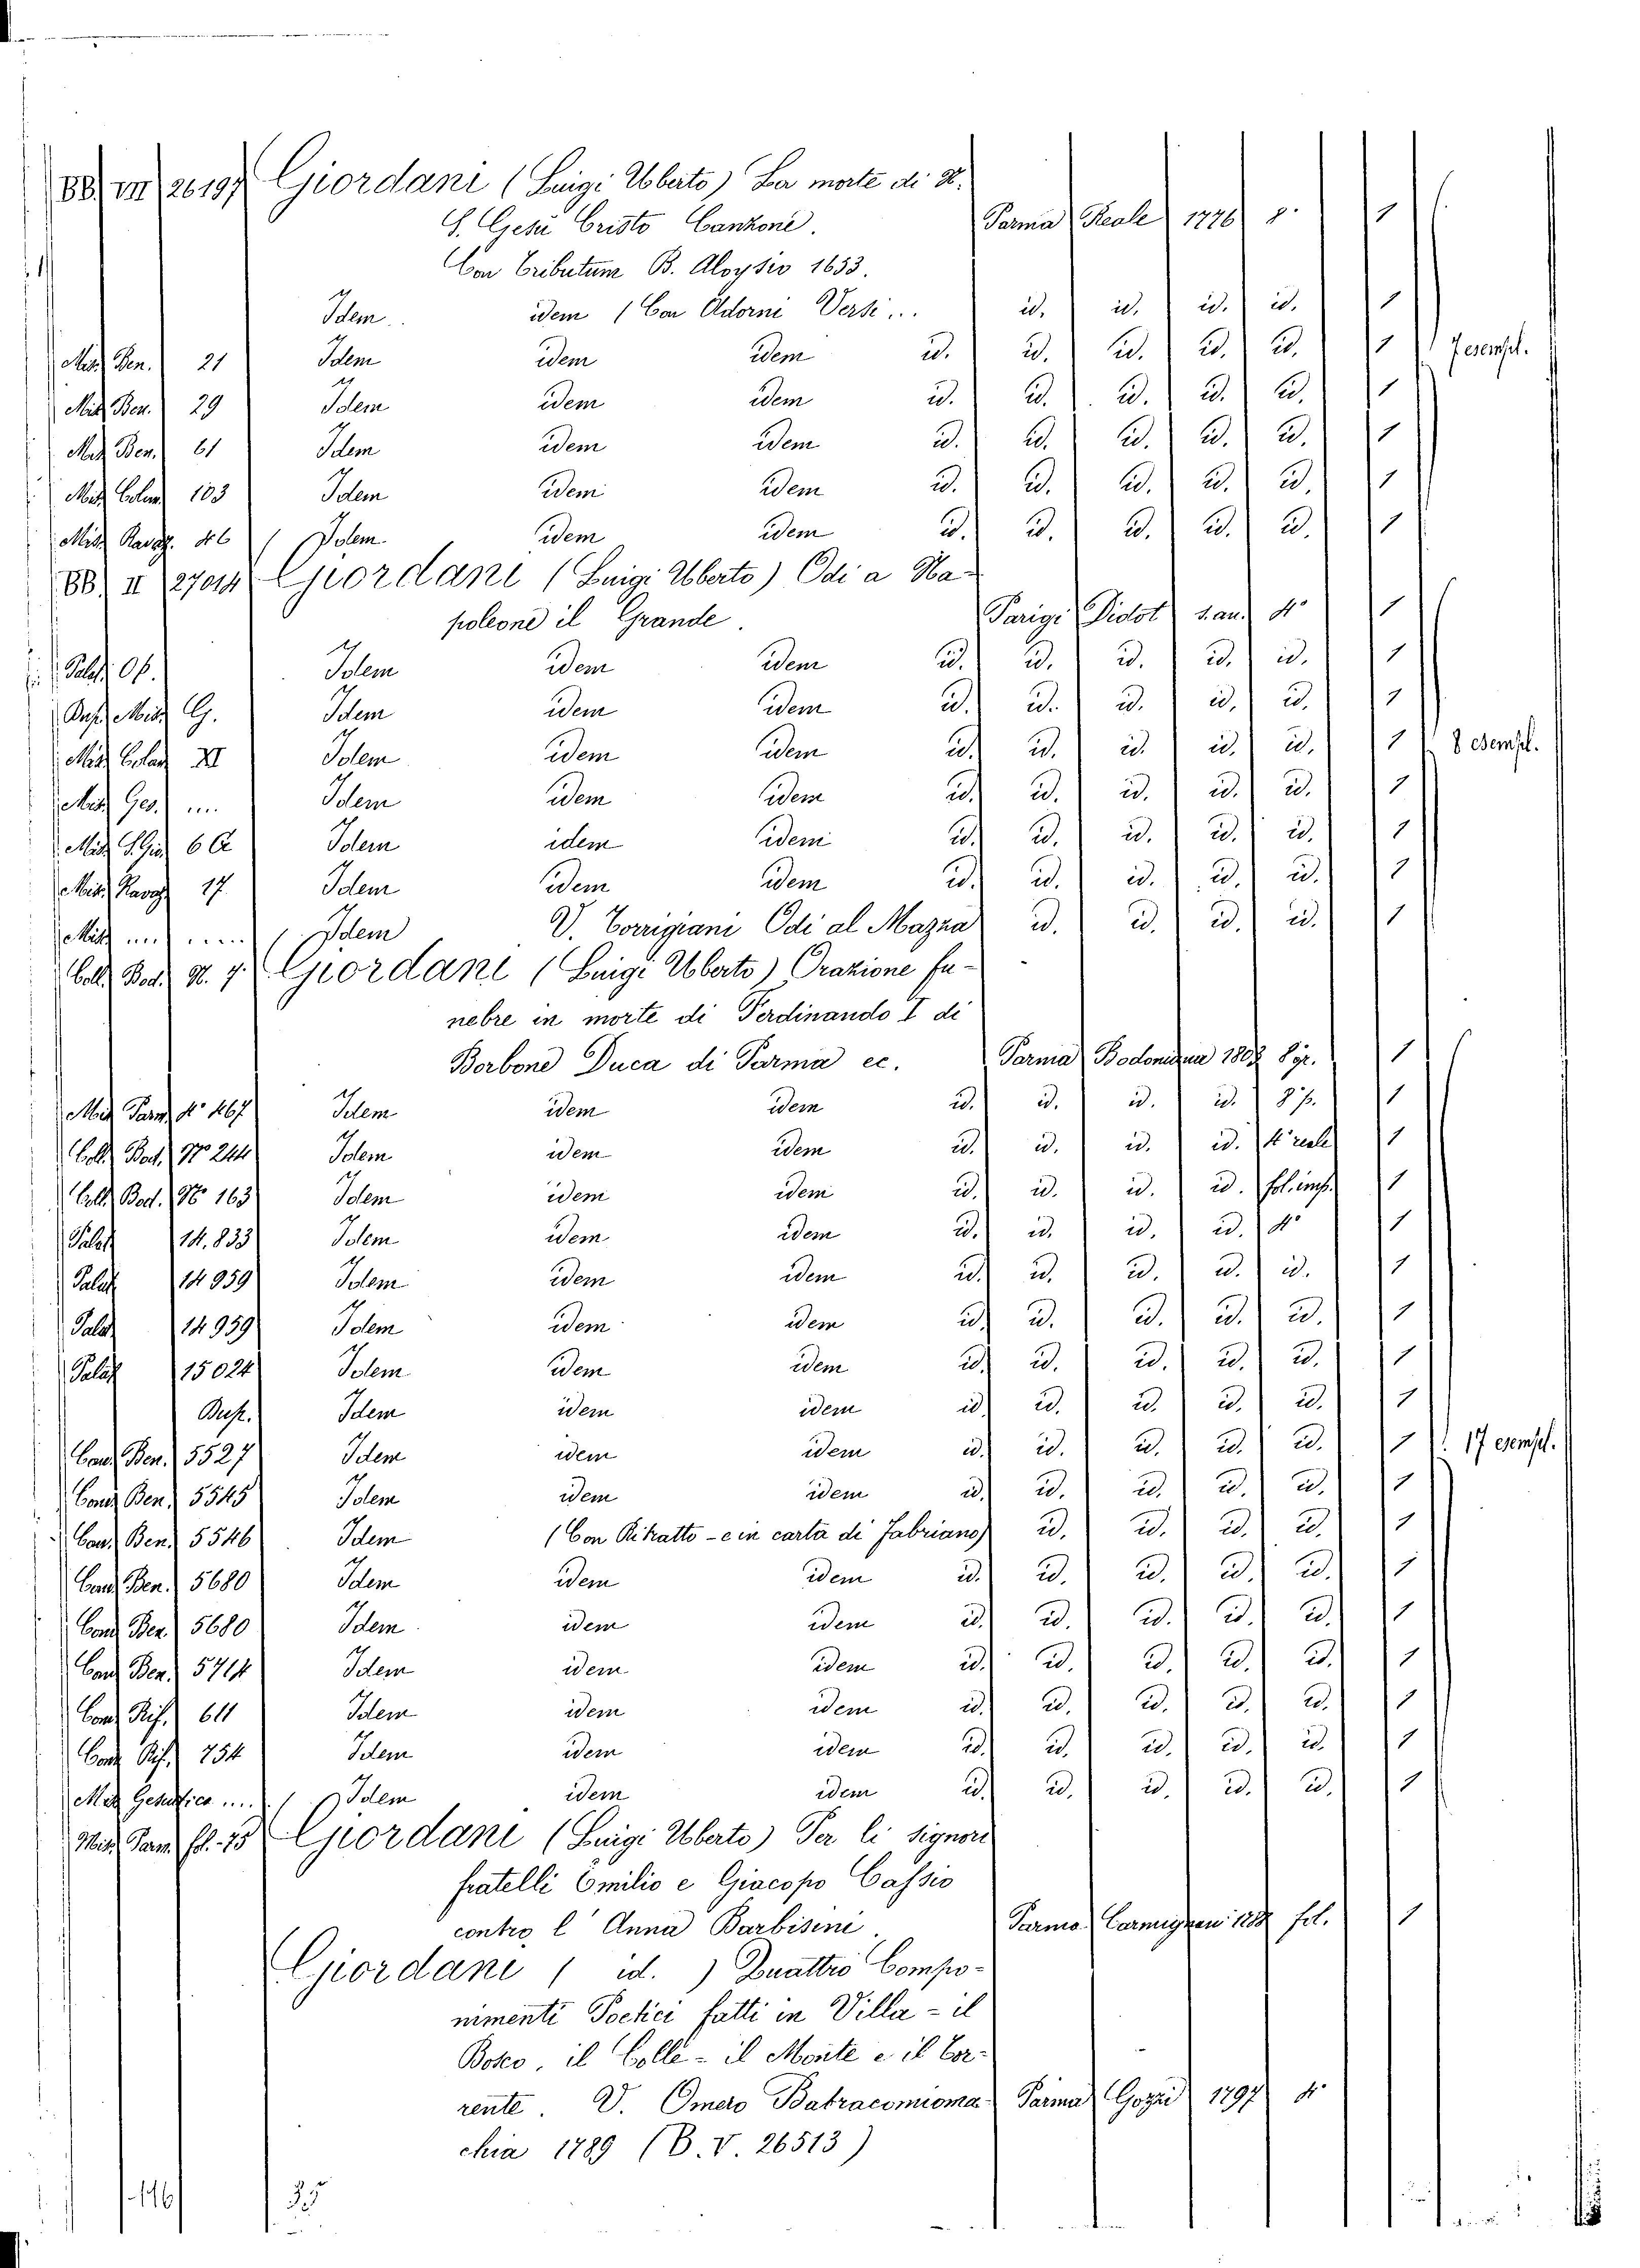 BB. VII 26197 Giordani (Luigi Uberto) La morte di N.
S. Gesù Cristo Canzone. Parma Reale 1776 8° 1
Con Tributum B. Aloysio 1653.
Idem idem (Con Adorni Versi... id. id. id. id. 1
Misc. Ben. 21 Idem idem idem id. id. id. id. id. 1 7 esempl.
Misc. Ben. 29 Idem idem idem id. id. id. id. id. 1
Misc. Ben. 61 Idem idem idem id. id. id. id. id. 1
Misc. Colom. 103 Idem idem idem id. id. id. id. id. 1
Misc. Ravaz. 46 Idem idem idem id. id. id. id. id. 1
BB. II 27014 Giordani (Luigi Uberto) Odi a Na-
poleone il Grande. Parigi Didot s. an. 4° 1
Palat. Op. Idem idem idem id. id. id. id. id. 1
Dup. Misc. G. Idem idem idem id. id. id. id. id. 1
Misc. XI Idem idem idem id. id. id. id. id. 1 8 esempl.
Misc. Ges. .... Idem idem idem id. id. id. id. id. 1
Misc. S. Gio. 6 Idem idem idem id. id. id. id. id. 1
Misc. Ravaz. 17 Idem idem idem id. id. id. id. id. 1
Misc. ... .... Idem V. Torrigiani Odi al Mazza id. id. id. id. 1
Coll. Bod. N. 7. Giordani (Luigi Uberto) Orazione fu-
nebre in morte di Ferdinando I di
Borbone Duca di Parma ec. Parma Bodoniana 1803 8 gr. 1
Misc. Parm. 4° 467 Idem idem idem id. id. id. id. 8° p. 1
Coll. Bod. N° 244 Idem idem idem id. id. id. id. 4° reale 1
Coll. Bod. N° 163 Idem idem idem id. id. id. id. fol. imp. 1
Palat. 14.833 Idem idem idem id. id. id. id. 4° 1
Palat. 14959 Idem idem idem id. id. id. id. id. 1
Palat. 14959 Idem idem idem id. id. id. id. id. 1
Palat. 15024 Idem idem idem id. id. id. id. id. 1
Dup. Idem idem idem id. id. id. id. id. 1
Cond. Ben. 5527 Idem idem idem id. id. id. id. id. 1 17 esempl.
Cond. Ben. 5545 Idem idem idem id. id. id. id. id. 1
Cond. Ben. 5546 Idem (Con Ritratto - e in carta di Fabriano) id. id. id. id. 1
Cond. Ben. 5680 Idem idem idem id. id. id. id. id. 1
Cond. Ben. 5680 Idem idem idem id. id. id. id. id. 1
Cond. Ben. 5714 Idem idem idem id. id. id. id. id. 1
Cond. Rif. 611 Idem idem idem id. id. id. id. id. 1
Cond. Rif. 754 Idem idem idem id. id. id. id. id. 1
Misc. Gesuitica .... Idem idem idem id. id. id. id. id. 1
Misc. Parm. fol. 15 Giordani (Luigi Uberto) Per li signori
fratelli Emilio e Giacopo Cassio
contro l'Anna Barbisini. Parma Carmignani fol. 1
Giordani ( id. ) Quattro Compo-
nimenti Poetici fatti in Villa - il
Bosco, il Colle - il Monte e il Tor-
rente. V. Omero Batracomioma- Parma Gozzi 1797 4°
chia 1789 (B. V. 26513)
146 35